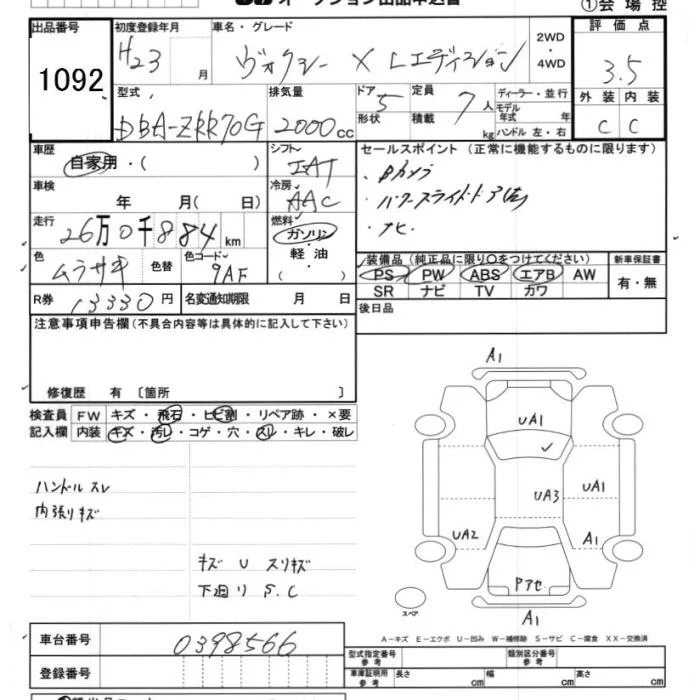 オークション出品申込書
①会場控
出品番号 初度登録年月 車名・グレード 評価点
1092 H23 月 ヴォクシー X Lエディション 2WD・4WD 3.5
型式 排気量 ドア 定員 ディーラー・並行 外装 内装
DBA-ZRR70G 2000cc 5 7人 モデル年式 年 C C
形状 積載 kg ハンドル 左・右
車歴 シフト セールスポイント (正常に機能するものに限ります)
自家用・( ) IAT ・Bカメラ
車検 年 月( 日) 冷房 AAC ・パワースライドドア(左)
走行 26万0千884km 燃料 ガソリン・軽油・( ) ・ナビ
色 ムラサキ 色替 色コード 9AF
装備品 (純正品に限り○をつけてください) 新車保証書
PS PW ABS エアB AW 有・無
SR ナビ TV カワ
R券 13330円 名変通知期限 月 日 後日品
注意事項申告欄(不具合内容等は具体的に記入して下さい)
修復歴 有 〔箇所 〕
検査員 FW キズ・飛石・ヒビ割・リペア跡・×要
記入欄 内装 キズ・汚レ・コゲ・穴・スレ・キレ・破レ
ハンドルスレ
内張りキズ
キズ U スリキズ
下廻り S.C
A1
UA1
UA3
UA1
UA2
A1
Pアセ
A1
スペア
A-キズ E-エクボ U-凹み W-補修跡 S-サビ C-腐食 XX-交換済
車台番号 0398566
型式指定番号 参考 類別区分番号 参考
登録番号 車庫証明用 参考 長さ cm 幅 cm 高さ cm